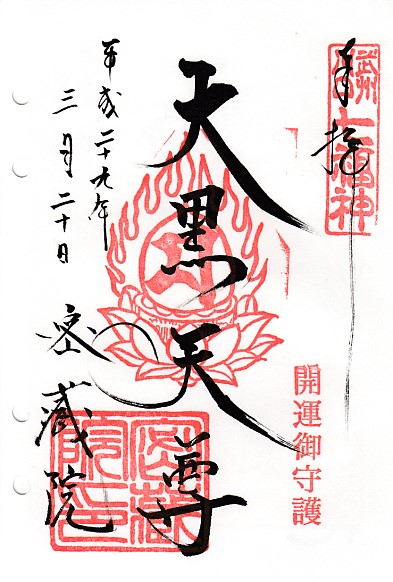 奉拝
七福神
開運御守護
大黒天尊
平成二十九年
三月二十日
密蔵院
密藏院印